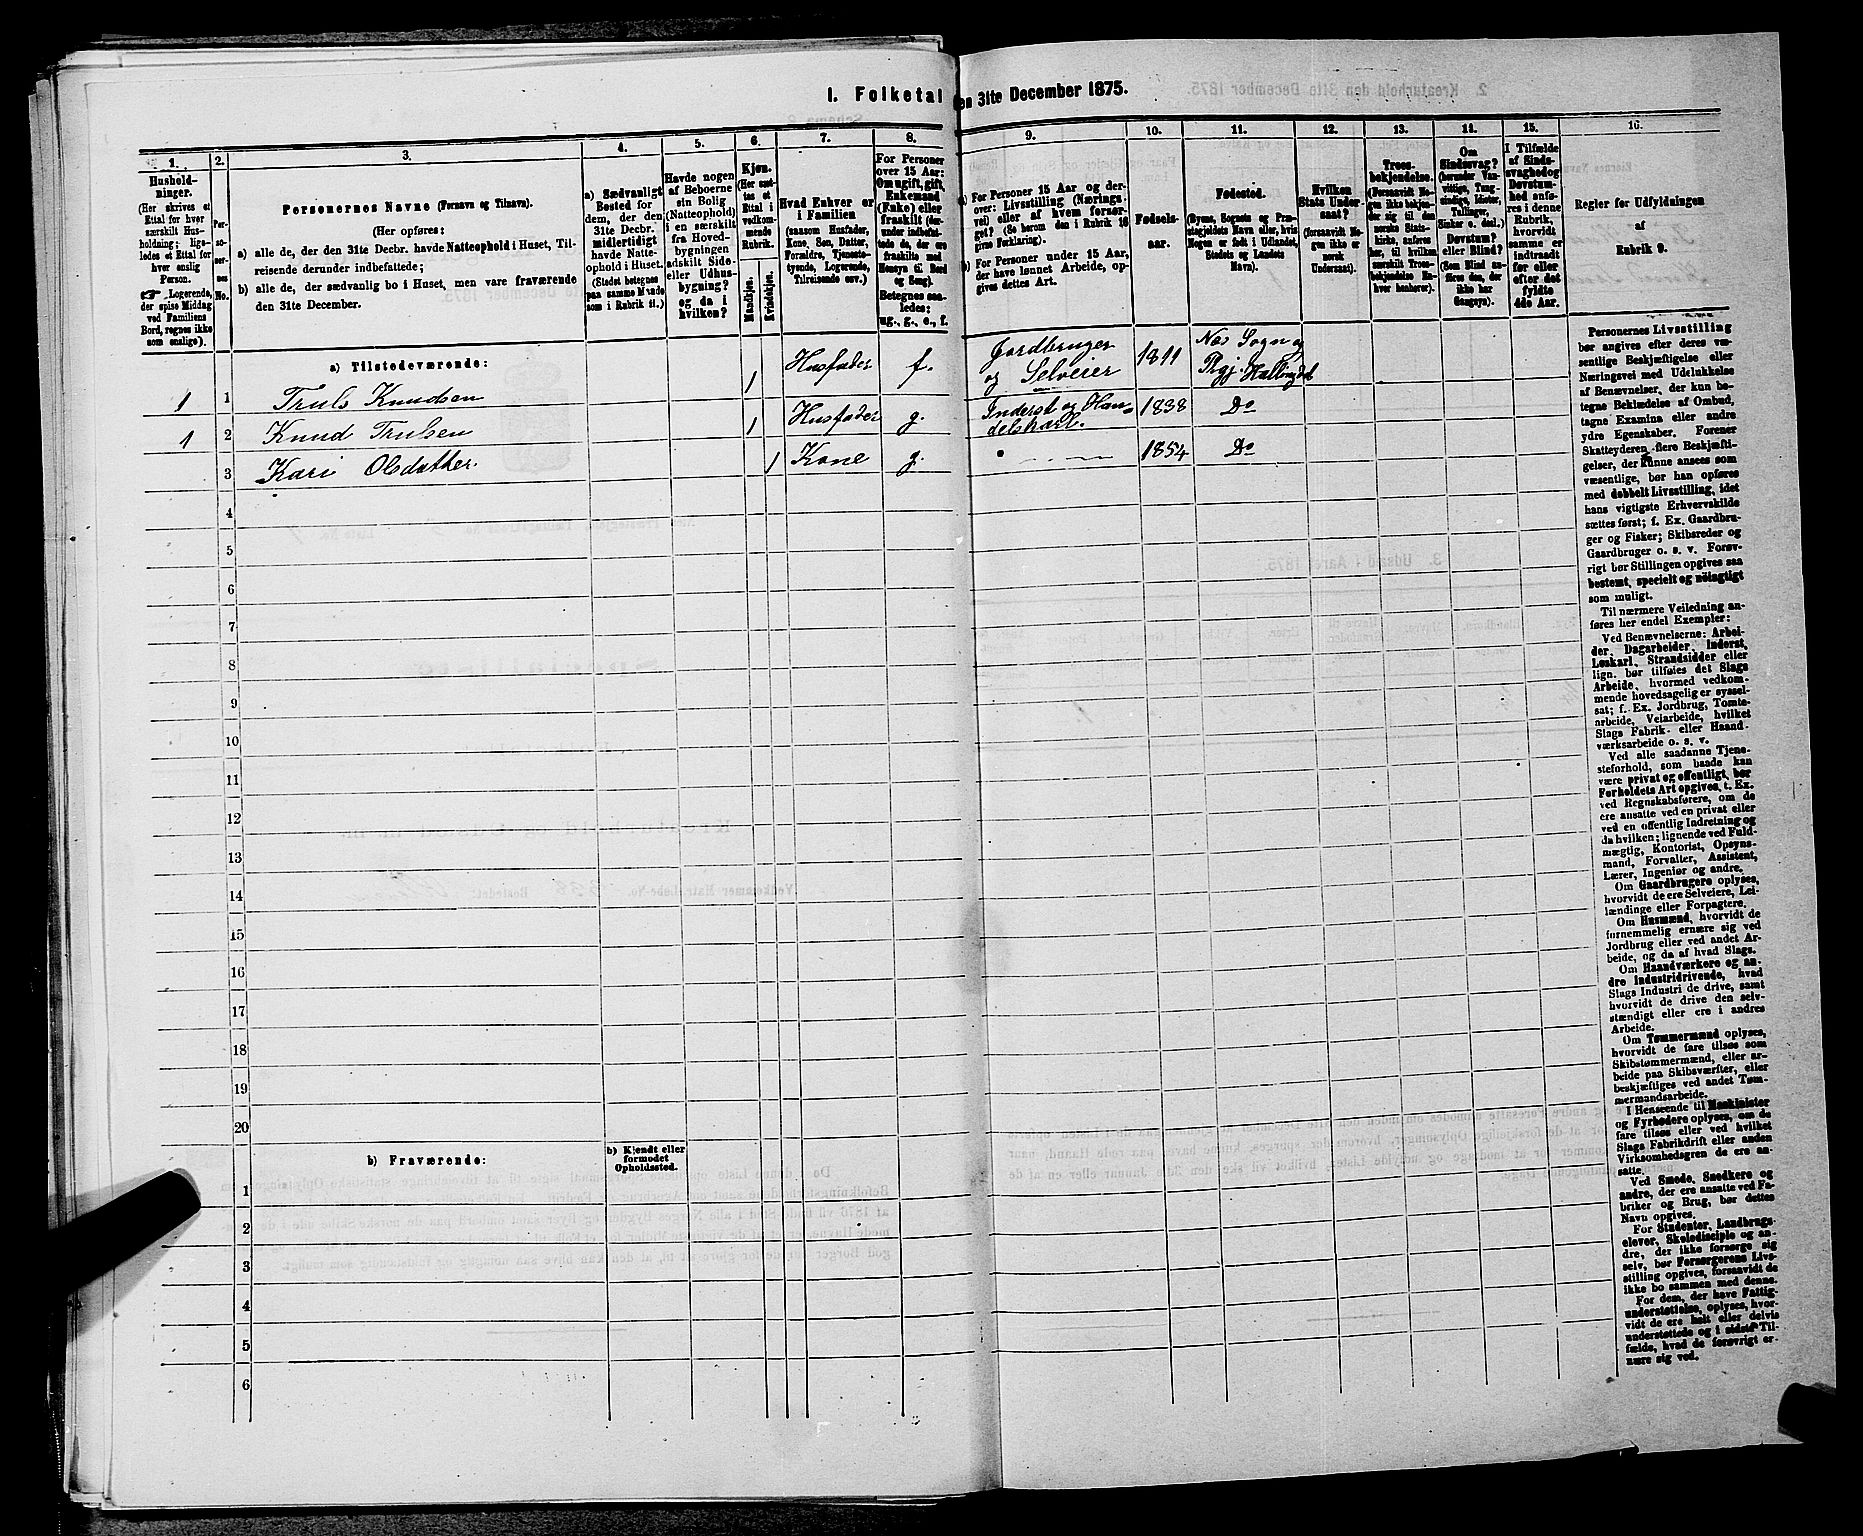 I. Folketal den 31te December 1875.
1. 2. 3. 4. 5. 6. 7. 8. 9. 10. 11. 12. 13. 14. 15. 16.
Husholdninger.
(Her skrives et
Ettal for hver
særskilt Husholdning; ligeledes
et Ettal for
hver enslig
Person.
☞ Logerende,
der spise Middag
ved Familiens
Bord, regnes ikke
som enslige).
Personernes No.
Personernes Navne (Fornavn og Tilnavn).
(Her opføres:
a) alle de, der den 31te Decbr. havde Natteophold i Huset, Tilreisende
derunder indbefattede;
b) alle de, der sædvanlig bo i Huset, men vare fraværende
den 31te December.
a) Sædvanligt
Bosted for
dem, der den
31te Decbr.
midlertidigt
havde Natteophold
i Huset.
(Stedet betegnes
paa samme Maade
som i Rubrik 11.)
Havde nogen
af Beboerne
sin Bolig
(Natteophold)
i en særskilt
fra Hovedbygningen
adskilt Side-
eller Udhusbygning?
og da i
hvilken?
Kjøn.
(Her sættes
et
Ettal i
vedkommende
Rubrik.
Mandkjøn.
Kvindekjøn.
Hvad Enhver er
i Familien
(saasom Husfader,
Kone, Søn, Datter,
Forældre, Tjenestetyende,
Logerende,
Tilreisende osv.)
For Personer
over 15 Aar:
Om ugift, gift,
Enkemand
(Enke) eller
fraskilt (derunder
indbefattede
de, der ere
fraskilte med
Hensyn til Bord
og Seng).
Betegnes saaledes:
ug., g., e., f.
a) For Personer 15 Aar og derover:
Livsstilling (Næringsvei)
eller af hvem forsørget?
(Se herom den i Rubrik 16
givne Forklaring).
b) For Personer under 15 Aar,
der have lønnet Arbeide, opgives
dettes Art.
Fødselsaar.
Fødested.
(Byens, Sognets og Præstegjeldets
Navn eller, hvis
Nogen er født i Udlandet,
Stedets og Landets
Navn).
Hvilken
Stats Undersaat?
(forsaavidt Nogen
ikke er
norsk
Undersaat).
Troesbekjendelse.
(Forsaavidt Nogen
ikke bekjender
sig til den
norske Statskirke,
anføres
her, til hvilken
særskilt Troesbekjendelse
Enhver
henhører).
Om
Sindssvag?
(herunder Vanvittige,
Tungsindige,
Idioter,
Tullinger,
Sinker o. desl.)
Døvstum?
eller Blind?
(Som Blind anføres
den, der
ikke har
Gangsyn).
I Tilfælde
af Sindssvaghed
og
Døvstumhed
anføres
i denne
Rubrik,
hvorvidt
samme er
indtraadt
før eller
efter det
fyldte
4de Aar.
Regler for Udfyldningen
af
Rubrik 9.
a) Tilstedeværende:
1 1 Truls Knudsen 1 Husfader f. Jordbruger og Selveier 1811 Næs Sogn og Prgj. Hallingdal
1 2 Knud Trulsen 1 Husfader g. Inderst og Handelskarl. 1838 Do
3 Kari Olsdatter. 1 Kone g. 1854 Do
4
5
6
7
8
9
10
11
12
13
14
15
16
17
18
19
20
b) Fraværende:
b) Kjendt eller
formodet
Opholdssted.
1
2
3
4
5
6
Personernes Livsstilling
bør angives efter deres væsentlige
Beskjæftigelse eller
Næringsvei med Udelukkelse
af Benævnelser, der kun betegne
Beklædelse af Ombud,
tagne Examina eller andre
ydre Egenskaber. Forener
Skatteyderen flere Beskjæftigelser,
der kunne ansees som
væsentlige, bør han opføres
med dobbelt Livsstilling, idet
hans vigtigste Erhvervskilde
sættes først; f. Ex. Gaardbruger
og Fisker; Skibsreder og
Gaardbruger o. s. v. Forøvrigt
bør Stillingen opgives saa
bestemt, specielt og nöiagtigt
som muligt.
Til nærmere Veiledning anføres
her endel Exempler:
Ved Benævnelserne: Arbeider,
Dagarbeider, Inderst,
Løskarl, Strandsidder eller
lign. bør tilføies det Slags
Arbeide, hvormed vedkommende
hovedsagelig er sysselsat;
f. Ex. Jordbrug, Tomtearbeide,
Veiarbeide, hvilket
Slags Fabrik- eller Haandværksarbeide
o. s. v.
Ved alle saadanne Tjenesteforhold,
som baade kan
være privat og offentligt, bør
Forholdets Art opgives, t. Ex.
ved Regnskabsførere, om de
ere ansatte ved en privat eller
ved en offentlig Indretning og
da hvilken; lignende ved Fuldmægtig,
Kontorist, Opsynsmand,
Forvalter, Assistent,
Lærer, Ingeniør og andre.
Om Gaardbrugere oplyses,
hvorvidt de ere Selveiere, Leilændinge
eller Forpagtere.
Om Husmænd, hvorvidt de
fornemmelig ernære sig ved
Jordbrug eller ved andet Arbeide,
og da af hvad Slags.
Om Haandværkere og andre
industridrivende, hvad
Slags Industri de drive, samt
hvorvidt de drive den selvstændigt
eller ere i andres
Arbeide.
Om Tømmermænd oplyses,
hvorvidt de fare tilsøs som
Skibstømmermænd, eller arbeide
paa Skibsværfter, eller
beskjæftiges ved andet Tømmermandsarbeide.
I Henseende til Maskinister
og Fyrbødere oplyses, om de
fare tilsøs eller ved hvilket
Slags Fabrikdrift eller anden
Virksomhedsgren de ere ansatte.
Ved Smede, Snedkere og
andre, der ere ansatte ved Fabriker
og Brug, bør dettes
Navn opgives.
For Studenter, Landbrugselever,
Skoledisciple og andre,
der ikke forsørge sig
selv, bør Forsørgerens Livsstilling
opgives, forsaavidt de
ikke bo sammen med denne.
For dem, der have Fattigunderstøttelse,
oplyses, hvorvidt
de ere helt eller delvis
understøttede og i sidste Tilfælde,
hvad de forøvrigt ernære
sig ved.